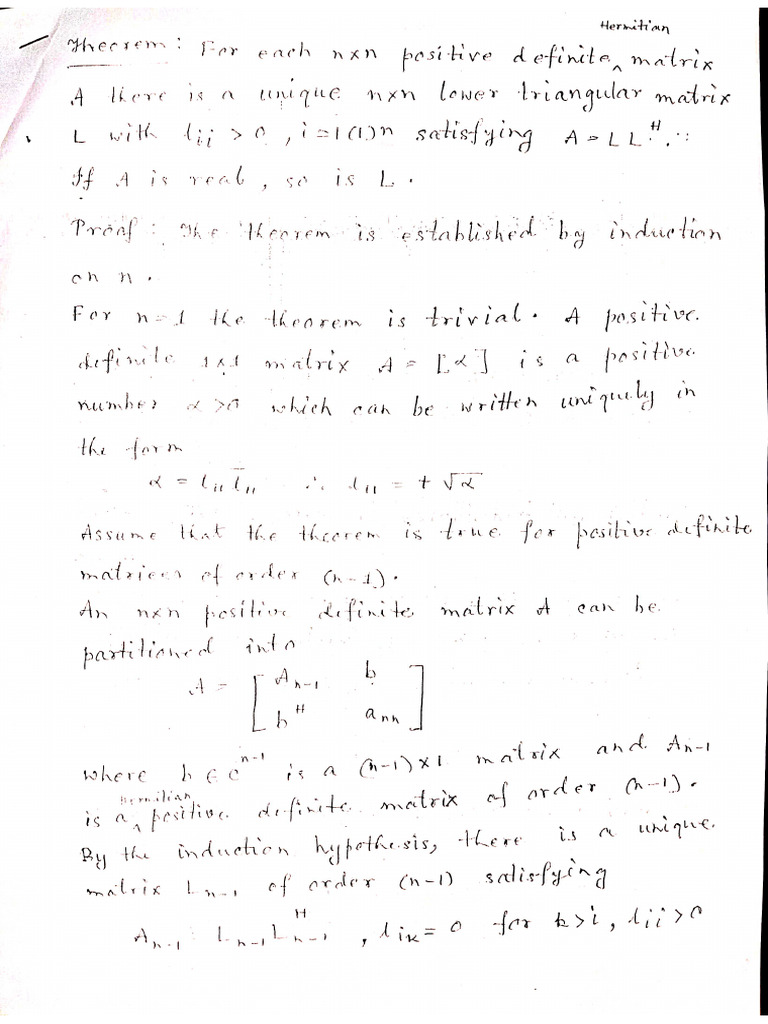 Hermitian
Theorem: For each n×n positive definite ‸ matrix
A there is a unique n×n lower triangular matrix
L with lii > 0, i=1(1)n satisfying A = L L^H.
If A is real, so is L.
Proof: The theorem is established by induction
on n.
For n=1 the theorem is trivial. A positive
definite 1×1 matrix A = [α] is a positive
number α>0 which can be written uniquely in
the form
α = l₁₁ l̄₁₁ ∴ l₁₁ = + √α
Assume that the theorem is true for positive definite
matrices of order (n-1).
An n×n positive definite matrix A can be
partitioned into
A = [ A_{n-1} b
b^H a_{nn} ]
where b ∈ C^{n-1} is a (n-1)×1 matrix and A_{n-1}
Hermitian
is a ‸ positive definite matrix of order (n-1).
By the induction hypothesis, there is a unique
matrix L_{n-1} of order (n-1) satisfying
A_{n-1} = L_{n-1} L_{n-1}^H, l_{ik} = 0 for k>i, l_{ii}>0